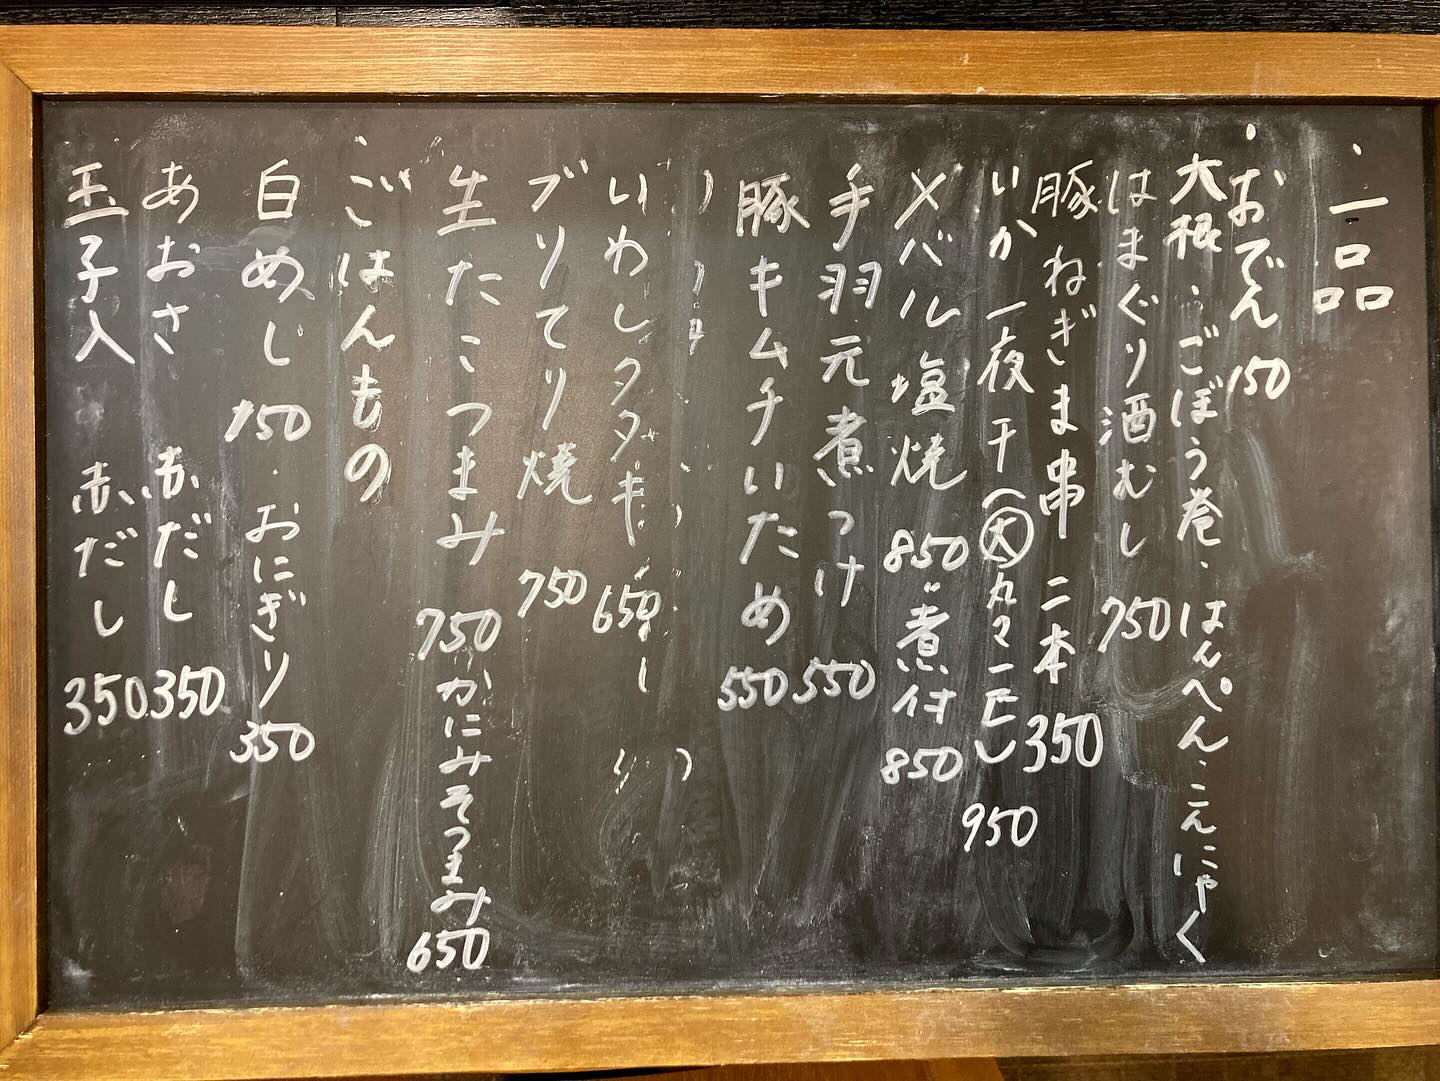 ・一品
・おでん 150
大根・ごぼう巻・はんぺん・こんにゃく
はまぐり酒むし 750
豚ねぎま串 二本 350
いか一夜干(大)丸マ一匹 950
メバル塩焼 850・煮付 850
手羽元煮つけ 550
豚キムチいため 550
いわしタタキ 650
ブリてり焼 750
生たこつまみ 750 かにみそつまみ 650
・ごはんもの
白めし 150・おにぎり 350
あおさ 赤だし 350
玉子入 赤だし 350